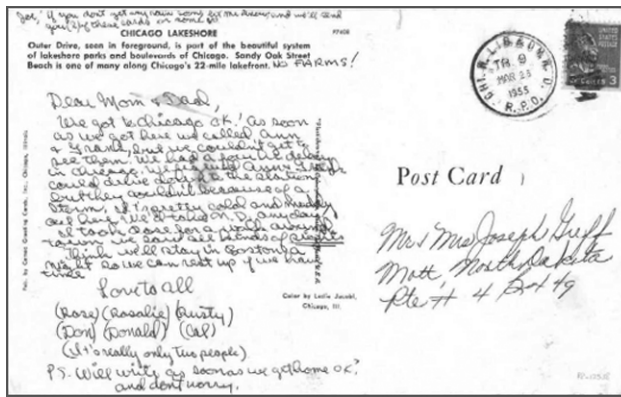 Joe, if you don't get any new
you of these cards on some
CHICAGO LAKESHORE
P7408
Outer Drive, seen in foreground, is part of the beautiful system
of lakeshore parks and boulevards of Chicago. Sandy Oak Street
Beach is one of many along Chicago's 22-mile lakefront. NO FARMS!
Dear Mom & Dad,
We got to Chicago O.K.! As soon
as we got here we called Ann
& Frank, but we couldn't get to
see them. We had a four hr. delay
in Chicago. We
could drive down to the station
but they couldn't because of a
storm. It's pretty cold and muddy
out here. We'll take N.D. any day!
I took Rose for a walk around
town. We saw all kinds of
Think we'll stay in Boston a
night so we can rest up if we have
time
Love to all
(Rose) (Rosalie) (Rusty)
(Don) (Donald) (Cal)
(It's really only two people).
P.S. Will write as soon as we get home O.K.?
and don't worry.
Pub. by Cameo Greeting Cards, Inc., Chicago, Illinois
Color by Leslie Jacobi,
Chicago, Ill.
CHI. R. LIB & OMA.
TR. 9
MAR 25
1955
R.P.O.
UNITED STATES
POSTAGE
3 CENTS 3
Post Card
Mr & Mrs Joseph Greff
Mott, North Dakota
Rte # 4 Box 49